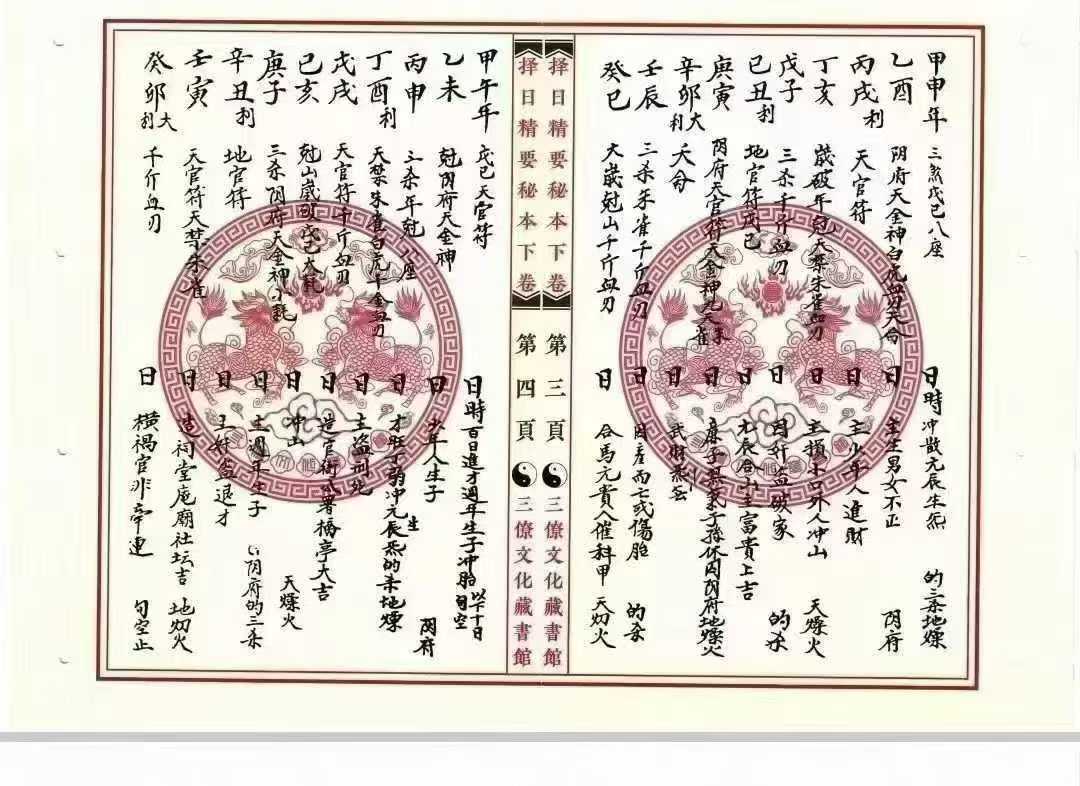 甲申年 三煞戊己八座 日時 冲散元辰生炁 的三杀地燥
乙酉 阴府天金神白虎血刃天命 日 主生男女不正 阴府
丙戌利 天官符 日 主少年人進财
丁亥 歲破年尅天禁朱雀血刃 日 主損小口外人冲山 天燥火
戊子 三杀千斤血刃 日 因奸盗破家 的杀
己丑利 地官符戊己 日 主富貴上吉
庚寅 阴府天官符天金神 日 庚子 阴府地燥火
辛卯大利 天命 日 武财
壬辰 三杀朱雀千斤血刃 日 因產而亡或傷胎 的杀
癸巳 大歲尅山千斤血刃 日 合馬元貴人催科甲 天灱火
择日精要秘本下卷 第三頁 三僚文化藏書館
择日精要秘本下卷 第四頁 三僚文化藏書館
甲午年 戊己天官符 日時 百日進才週年生子冲胎 以下十日旬空
乙未 尅阴府天金神 日 少年人生子 阴府
丙申 三杀年尅八座 日 才旺丁弱冲元辰生炁的杀地燥
丁酉利 天禁朱雀白虎千金血刃 日 主盗刑死
戊戌 天官符千斤血刃 日 造官衙公署橋亭大吉
己亥 尅山歲破戊己大耗 日 冲山 天燥火
庚子 三杀阴府天金神小耗 日 主週年生子 阴府的三杀
辛丑利 地官符 日 主奸盗退才
壬寅 天官符天禁朱雀 日 造祠堂庵廟社坛吉 地灱火
癸卯大利 千斤血刃 日 横禍官非牵連 旬空止